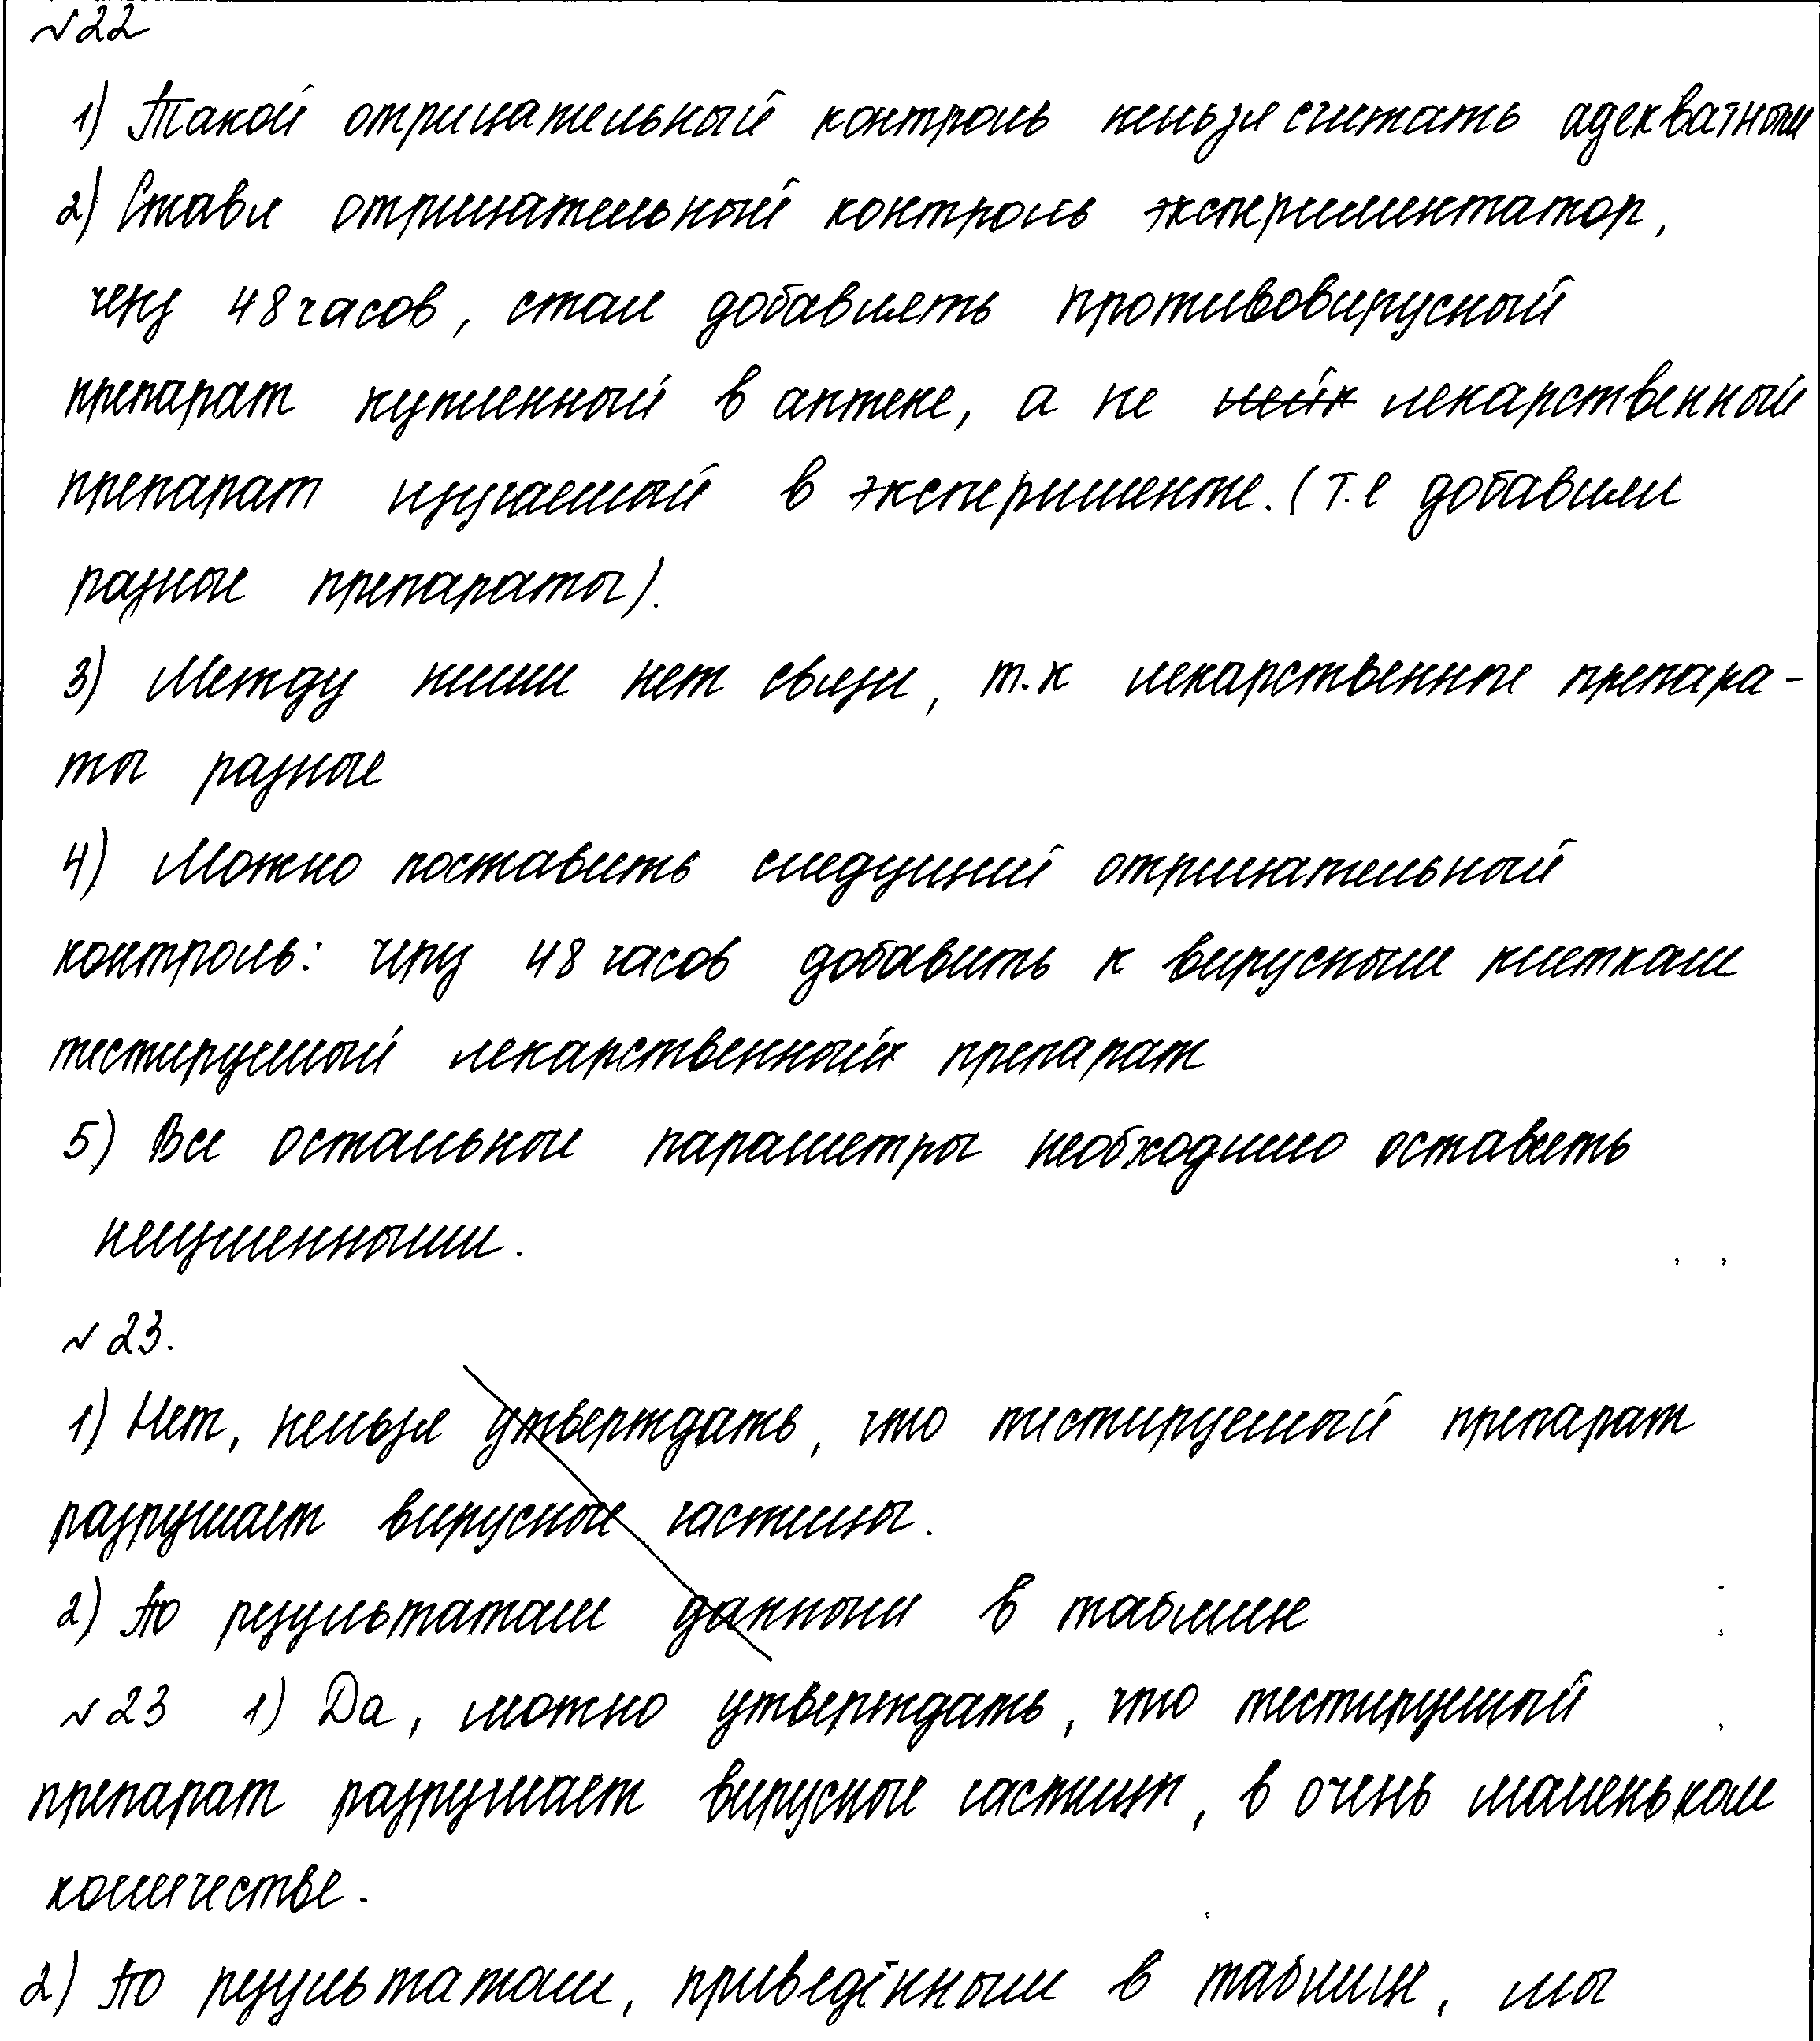 №22
1) Такой отрицательный контроль нельзя считать адекватным
2) Ставя отрицательный контроль экспериментатор,
через 48 часов, стал добавлять противовирусный
препарат купленный в аптеке, а не лекарственный
препарат изучаемый в эксперименте. (т.е добавили
разные препараты).
3) Между ними нет связи, т.к лекарственные препара-
ты разные
4) Можно поставить следущий отрицательный
контроль: через 48 часов добавить к вирусным клеткам
тестируемый лекарственный препарат
5) Все остальные параметры необходимо оставить
неизменными.
№23.
1) Нет, нельзя утверждать, что тестируемый препарат
разрушает вирусные частицы.
2) По результатам данным в таблице
№23 1) Да, можно утверждать, что тестируемый
препарат разрушает вирусные частицы, в очень маленьком
количестве.
2) По результатам, приведённым в таблице, мы